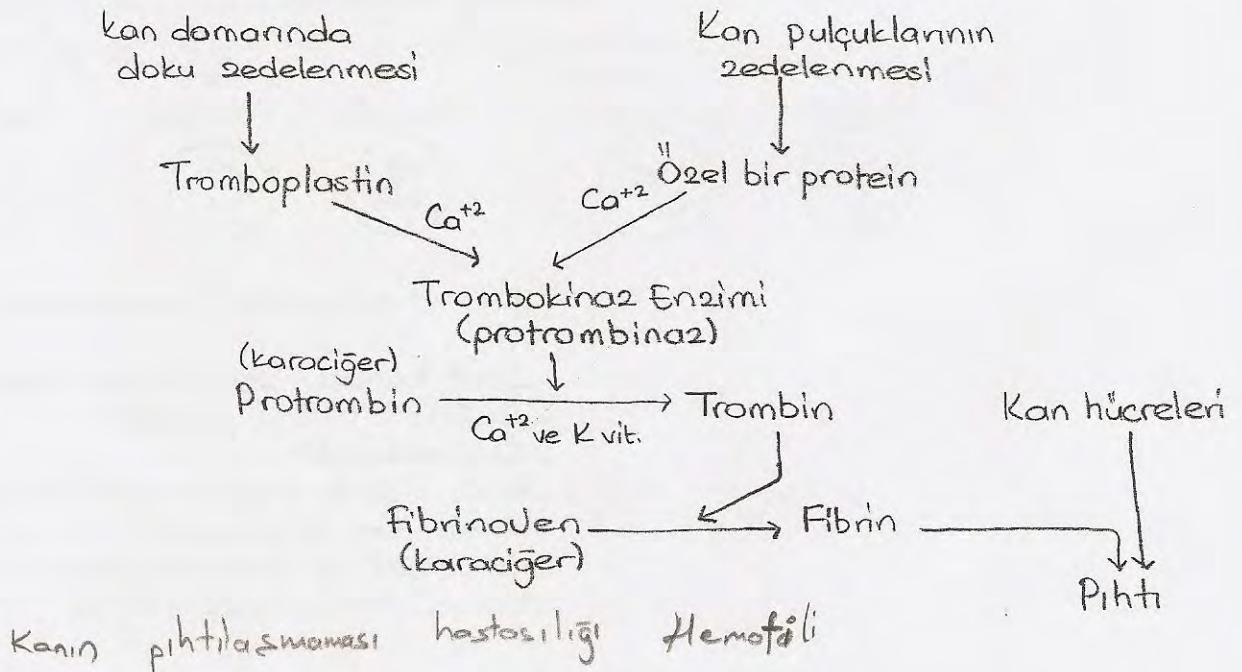 Kan damarında
doku zedelenmesi
Kan pulçuklarının
zedelenmesi
Tromboplastin
Özel bir protein
Ca+2
Ca+2
Trombokinaz Enzimi
(protrombinaz)
(karaciğer)
Protrombin
Ca+2 ve K vit.
Trombin
Kan hücreleri
Fibrinojen
(karaciğer)
Fibrin
Pıhtı
Kanın pıhtılaşmaması hastasılığı Hemofili